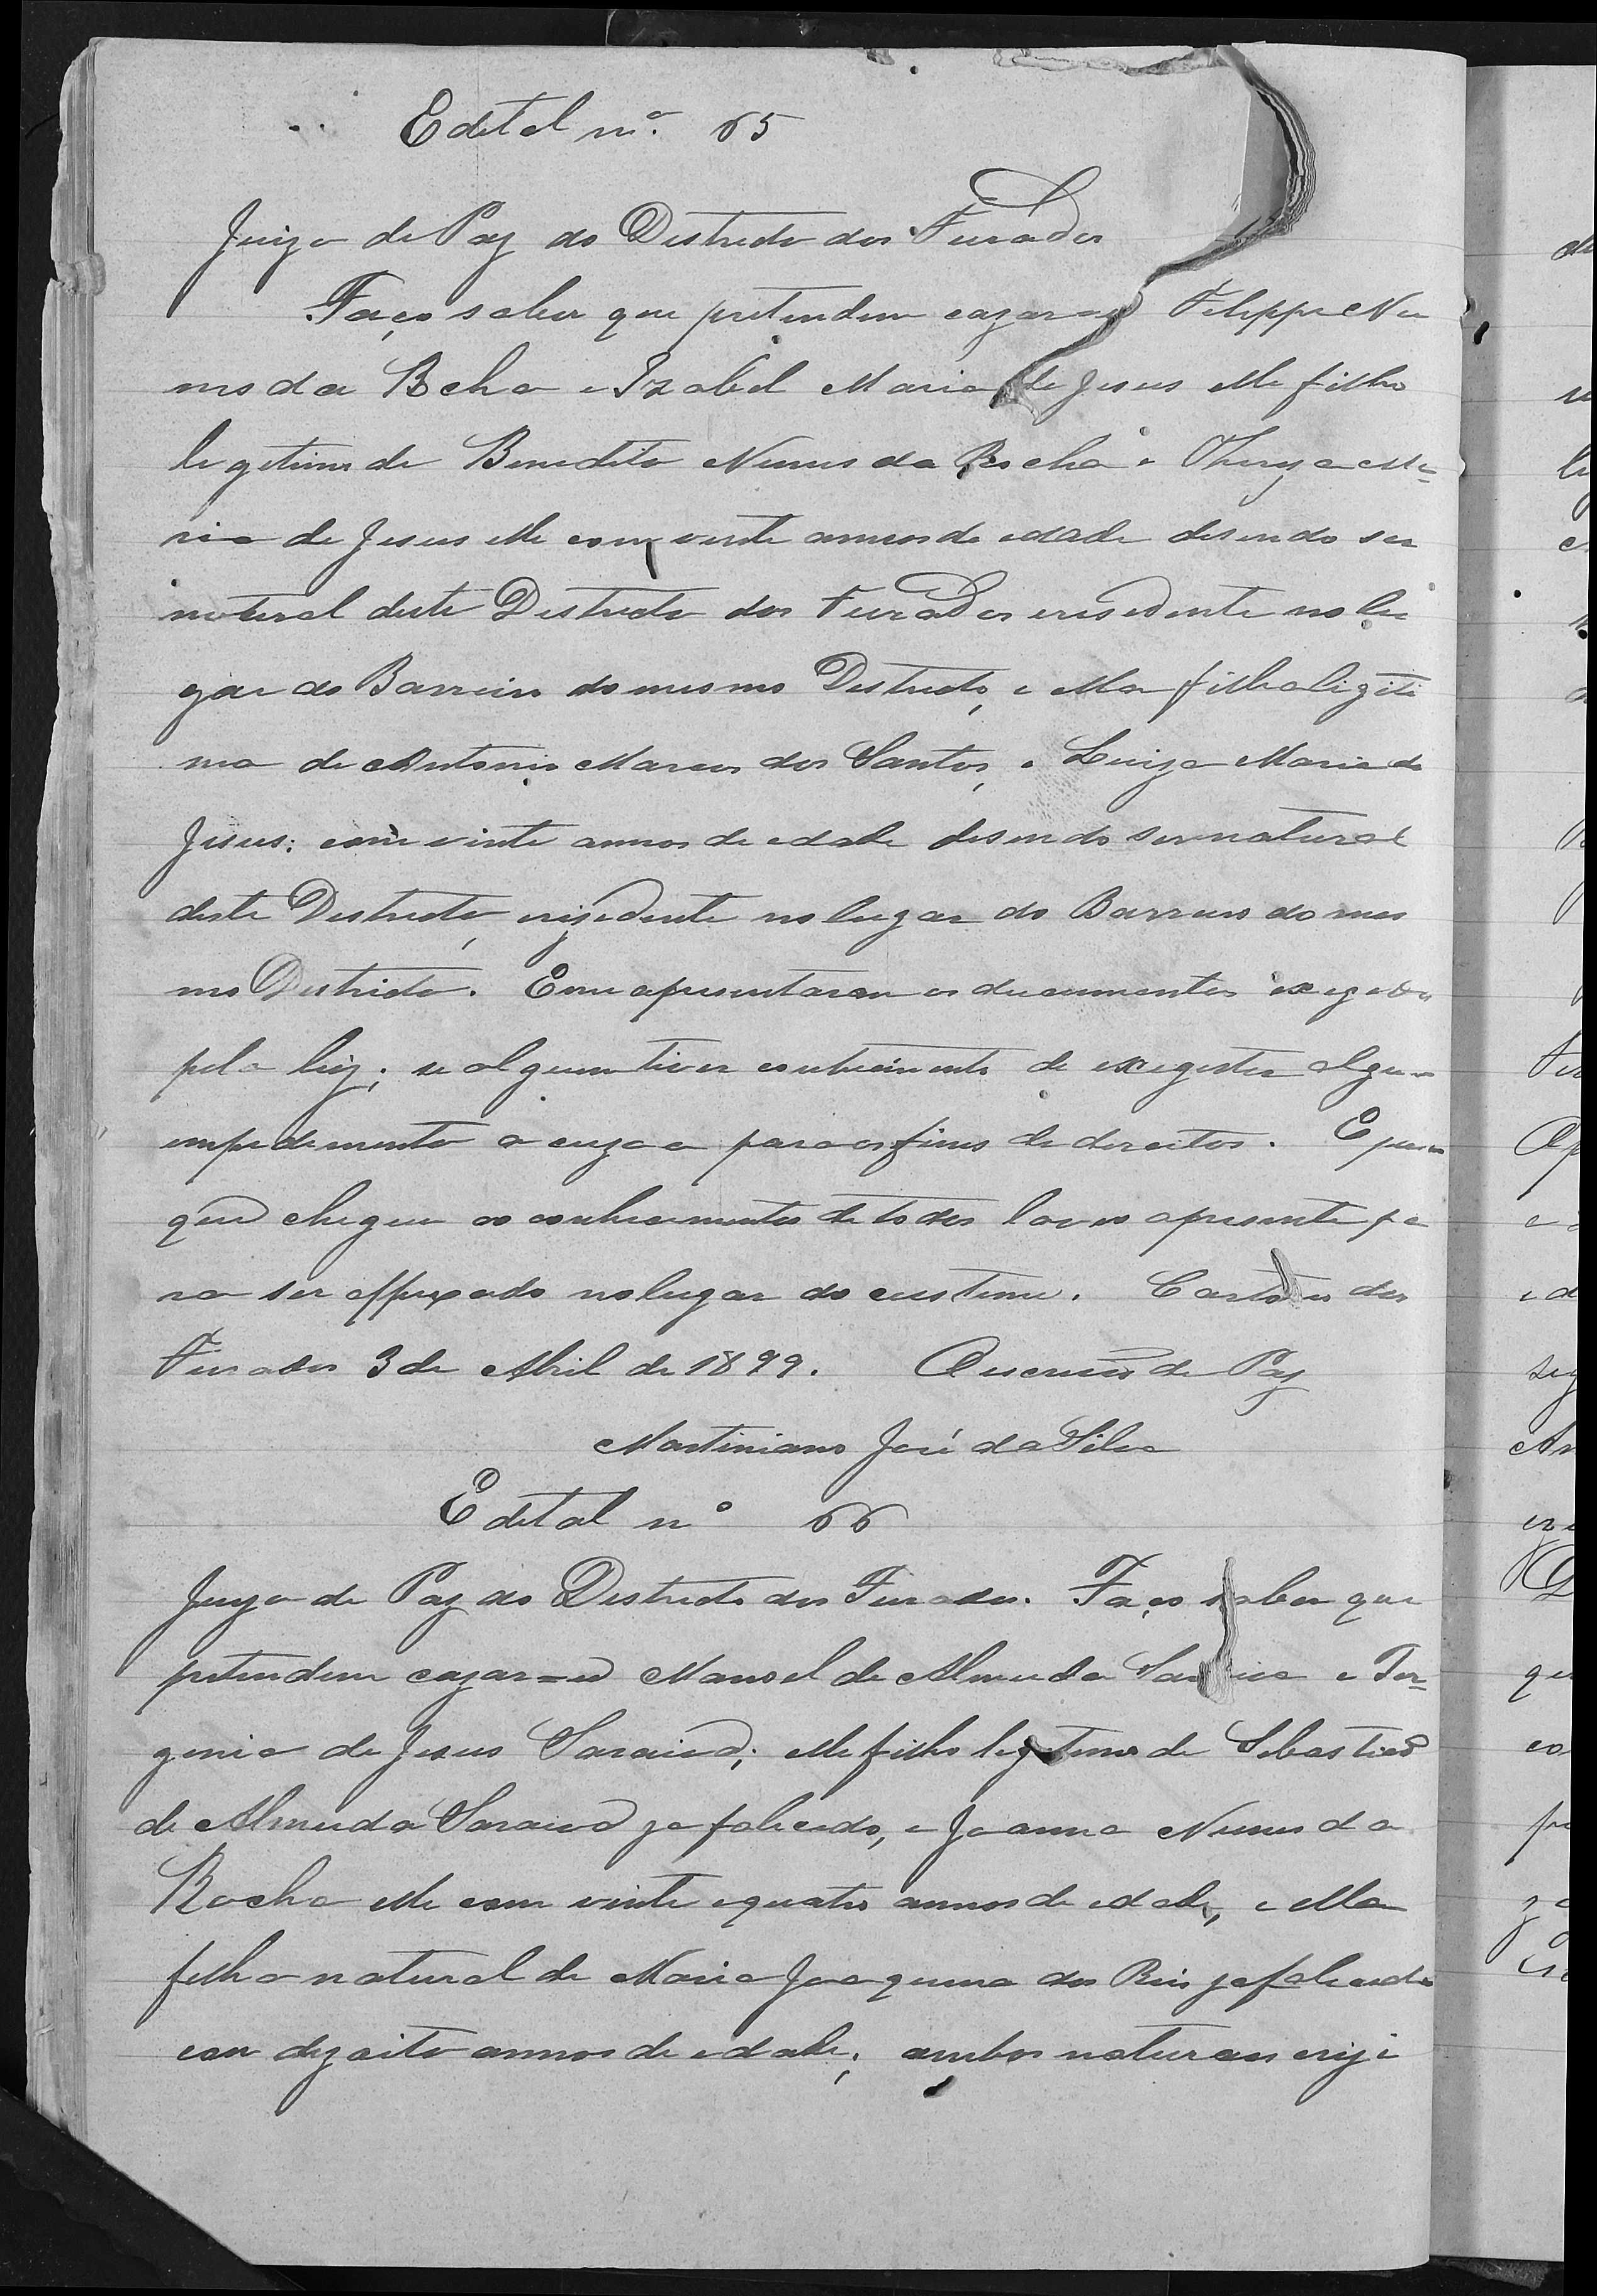 Edital nº. 65
Juizo de Paz do Destricto dos Furados
Faço saber que pretendem cazar-se Felippe Nu
nes da Rcha e Izabel Maria de Jesus elle filho
legetimo de Benedito Nunes da Rocha e Thereza Ma=
ria de Jesus elle com vinte annos de edade disendo ser
natural deste Destricto dos Furados eresedente no lu
gar do Barreiro do mesmo Destricto, e ella filha ligiti
ma de Antonio Marcos dos Santos, e Luiza Maria de
Jesus: com vinte annos de edade disendo ser natural
deste Destricto, erisedente no lugar do Barreiro do mes
mo Destricto. E me apresentaram os documentos exegedos
pela ley; se alguem tiver conhecimento de exegister algum
empedimento acuze o para os fins de dereitos. E para
que chegue ao conhecimentos de todos lavro apresente pa
ra ser affixado no lugar do custume. Cartorio dos
Furados 3 de Abril de 1899. O escrivão de Paz
Martiniano José da Silva
Edital nº 66
Juizo de Paz do Destricto dos Furados. Faço saber que
pretendem cazar=se Manoel de Almeida Saraiva e Ter=
genia de Jesus Saraiva; elle filho legetimo de Sebastião
de Almeida Saraiva ja falecido, e Joanna Nunes da
Rocha elle com vinte equatro annos de edade, e ella
filha natural de Maria Joaquina dos Reis ja falecida
com dezoito annos de edade; ambos naturaes erizi